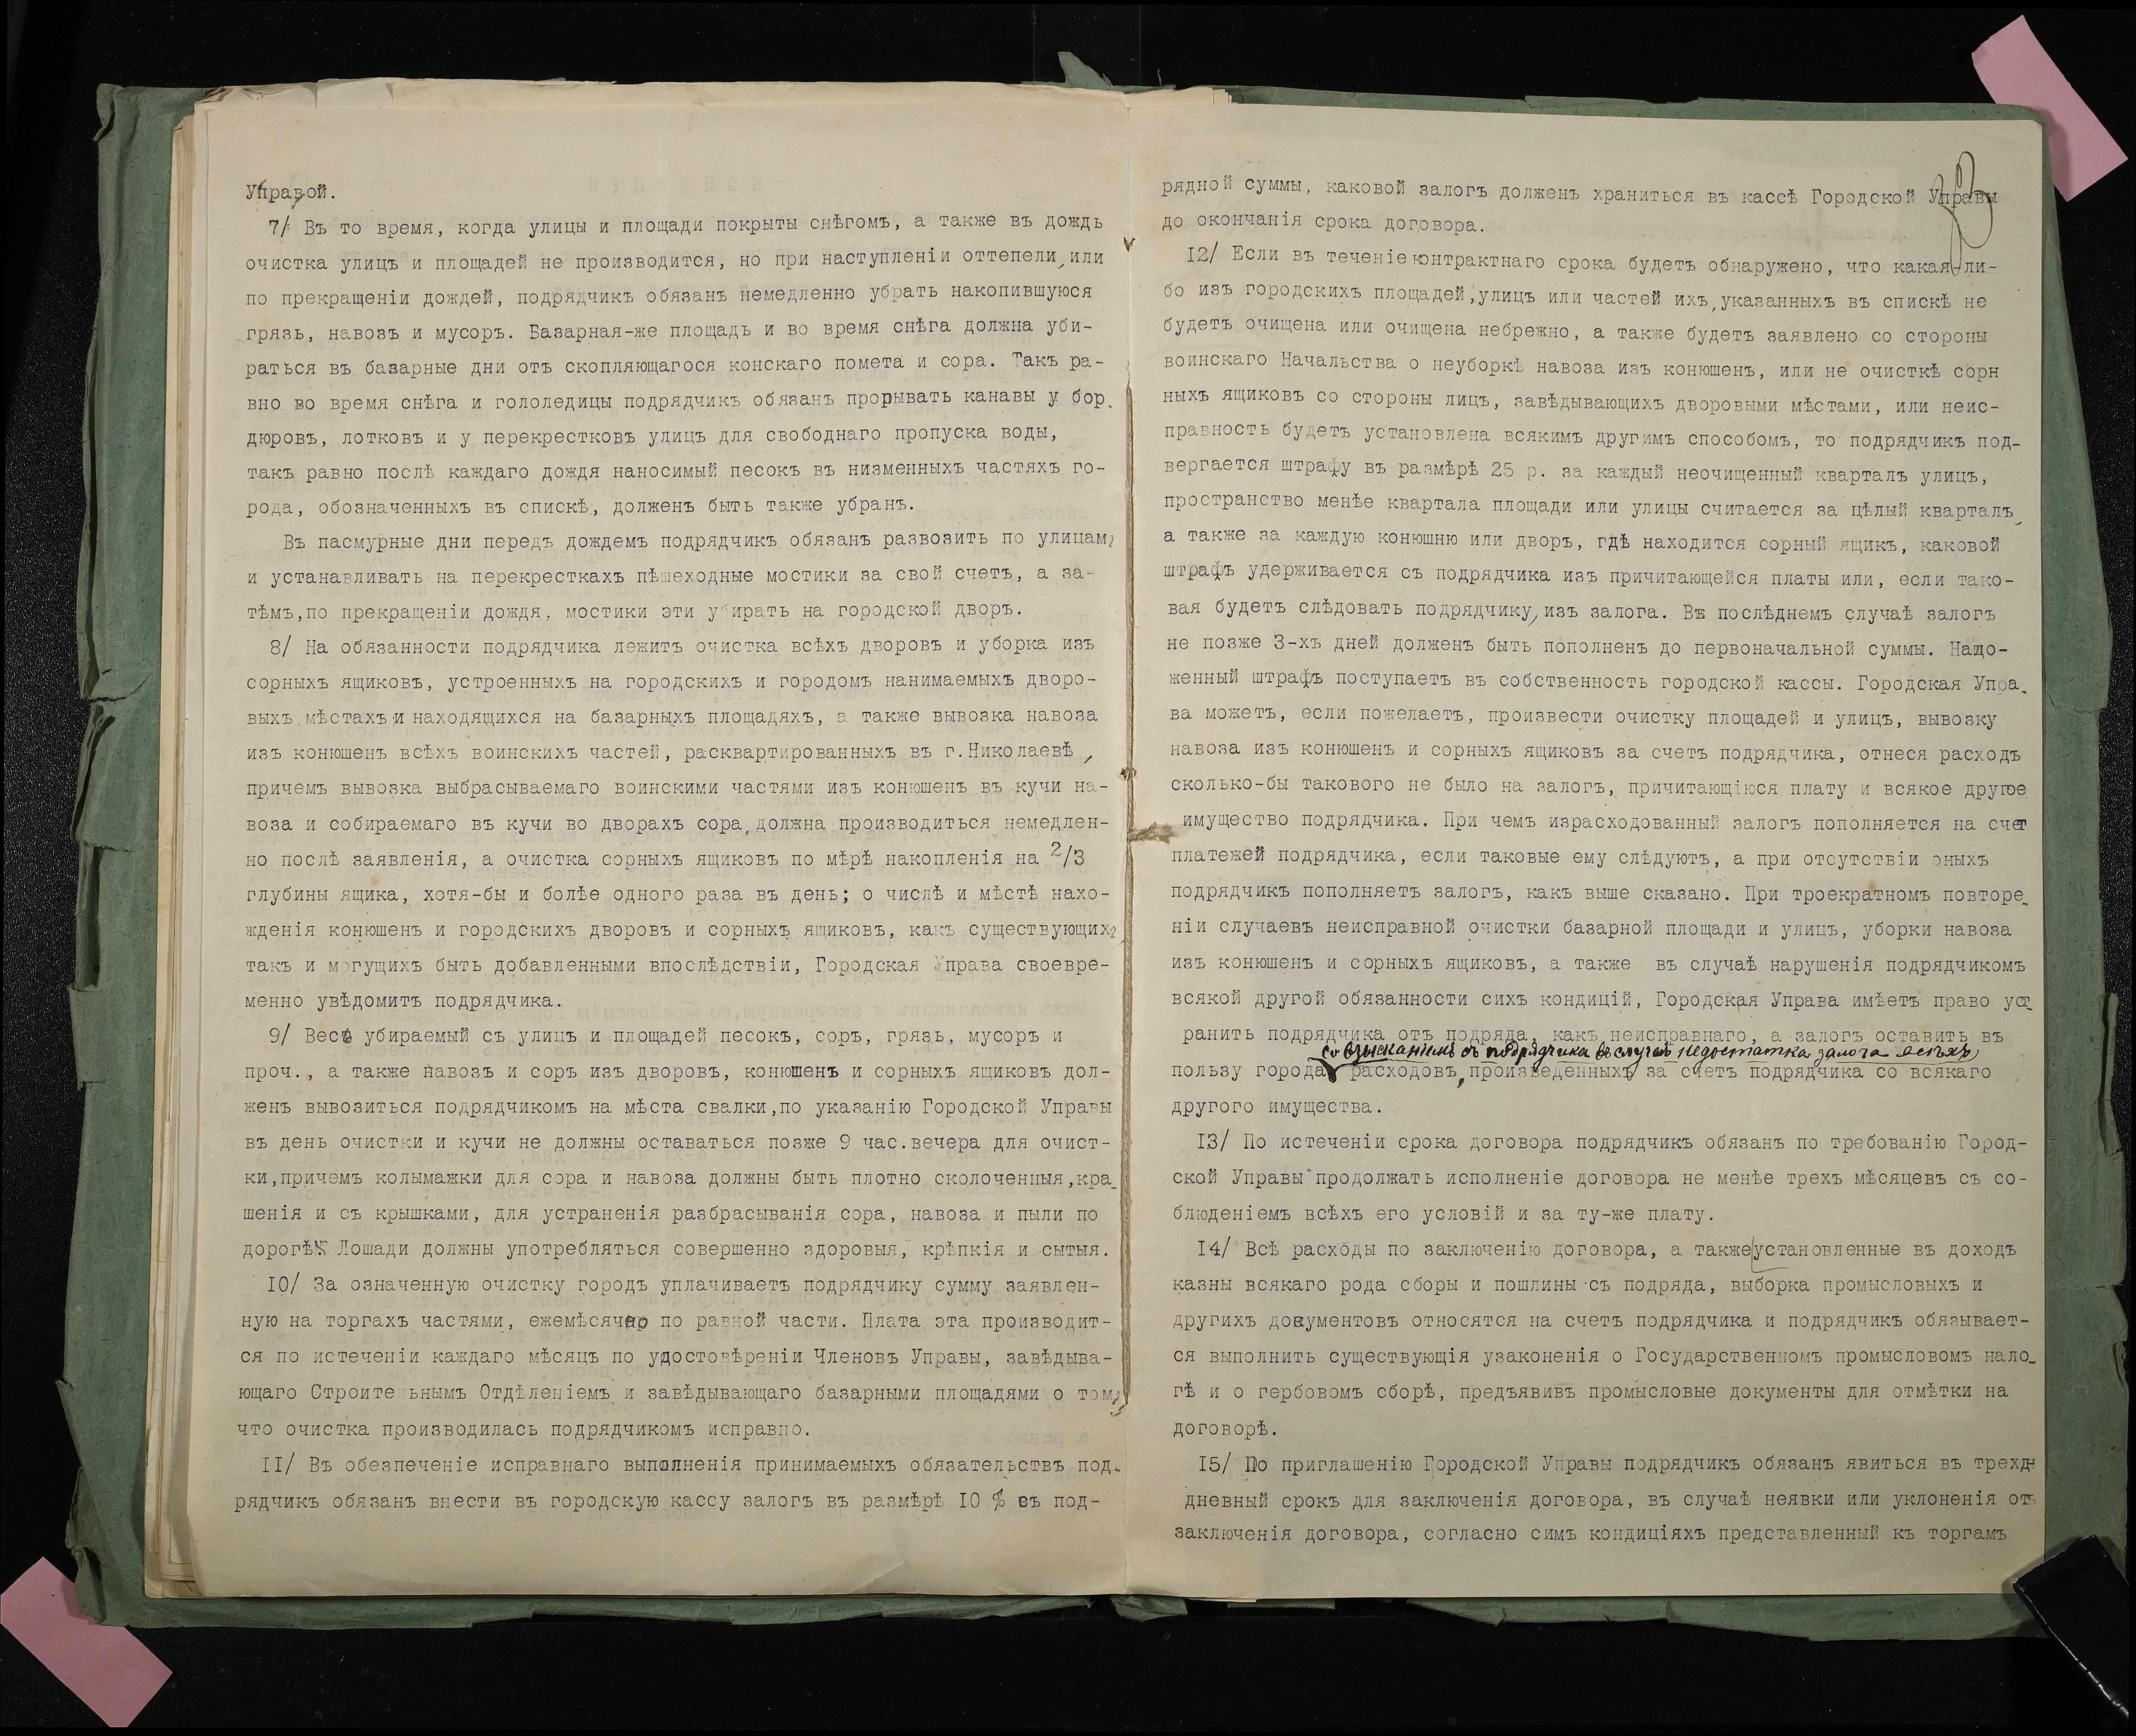 Управой.
7/ Въ то время, когда улицы и площади покрыты снѣгомъ, а также въ дождь
очистка улицъ и площадей не производится, но при наступленіи оттепели, или
по прекращеніи дождей, подрядчикъ обязанъ немедленно убрать накопившуюся
грязь, навозъ и мусоръ. Базарная-же площадь и во время снѣга должна уби-
раться въ базарные дни отъ скопляющагося конскаго помета и сора. Такъ ра-
вно во время снѣга и гололедицы подрядчикъ обязанъ прорывать канавы у бор-
дюровъ, лотковъ и у перекрестковъ улицъ для свободнаго пропуска воды,
такъ равно послѣ каждаго дождя наносимый песокъ въ низменныхъ частяхъ го-
рода, обозначенныхъ въ спискѣ, долженъ быть также убранъ.
Въ пасмурные дни передъ дождемъ подрядчикъ обязанъ развозить по улицамъ
и устанавливать на перекресткахъ пѣшеходные мостики за свой счетъ, а за-
тѣмъ,по прекращеніи дождя, мостики эти убирать на городской дворъ.
8/ На обязанности подрядчика лежитъ очистка всѣхъ дворовъ и уборка изъ
сорныхъ ящиковъ, устроенныхъ на городскихъ и городомъ нанимаемыхъ дворо-
выхъ мѣстахъ и находящихся на базарныхъ площадяхъ, а также вывозка навоза
изъ конюшенъ всѣхъ воинскихъ частей, расквартированныхъ въ г.Николаевѣ,
причемъ вывозка выбрасываемаго воинскими частями изъ конюшенъ въ кучи на-
воза и собираемаго въ кучи во дворахъ сора,должна производиться немедлен-
но послѣ заявленія, а очистка сорныхъ ящиковъ по мѣрѣ накопленія на 2/3
глубины ящика, хотя-бы и болѣе одного раза въ день; о числѣ и мѣстѣ нахо-
жденія конюшенъ и городскихъ дворовъ и сорныхъ ящиковъ, какъ существующихъ
такъ и могущихъ быть добавленными впослѣдствіи, Городская Управа своевре-
менно увѣдомитъ подрядчика.
9/ Весь убираемый съ улицъ и площадей песокъ, соръ, грязь, мусоръ и
проч., а также навозъ и соръ изъ дворовъ, конюшенъ и сорныхъ ящиковъ дол-
женъ вывозиться подрядчикомъ на мѣста свалки,по указанію Городской Управы
въ день очистки и кучи не должны оставаться позже 9 час.вечера для очист-
ки,причемъ колымажки для сора и навоза должны быть плотно сколоченныя,кра-
шенія и съ крышками, для устраненія разбрасыванія сора, навоза и пыли по
дорогѣ. Лошади должны употребляться совершенно здоровыя, крѣпкія и сытыя.
10/ За означенную очистку городъ уплачиваетъ подрядчику сумму заявлен-
ную на торгахъ частями, ежемѣсячно по равной части. Плата эта производит-
ся по истеченіи каждаго мѣсяцъ по удостовѣреніи Членовъ Управы, завѣдыва-
ющаго Строительнымъ Отдѣленіемъ и завѣдывающаго базарными площадями о томъ,
что очистка производилась подрядчикомъ исправно.
11/ Въ обезпеченіе исправнаго выполненія принимаемыхъ обязательствъ под-
рядчикъ обязанъ внести въ городскую кассу залогъ въ размѣрѣ 10 % съ под-
рядной суммы, каковой залогъ долженъ храниться въ кассѣ Городской Управы
до окончанія срока договора.
12/ Если въ теченіе контрактнаго срока будетъ обнаружено, что какая-ли-
бо изъ городскихъ площадей,улицъ или частей ихъ,указанныхъ въ спискѣ не
будетъ очищена или очищена небрежно, а также будетъ заявлено со стороны
воинскаго Начальства о неуборкѣ навоза изъ конюшенъ, или не очисткѣ сорн
ныхъ ящиковъ со стороны лицъ, завѣдывающихъ дворовыми мѣстами, или неис-
правность будетъ установлена всякимъ другимъ способомъ, то подрядчикъ под-
вергается штрафу въ размѣрѣ 25 р. за каждый неочищенный кварталъ улицъ,
пространство менѣе квартала площади или улицы считается за цѣлый кварталъ,
а также за каждую конюшню или дворъ, гдѣ находится сорный ящикъ, каковой
штрафъ удерживается съ подрядчика изъ причитающейся платы или, если тако-
вая будетъ слѣдовать подрядчику, изъ залога. Въ послѣднемъ случаѣ залогъ
не позже 3-хъ дней долженъ быть пополненъ до первоначальной суммы. Нало-
женный штрафъ поступаетъ въ собственность городской кассы. Городская Упра-
ва можетъ, если пожелаетъ, произвести очистку площадей и улицъ, вывозку
навоза изъ конюшенъ и сорныхъ ящиковъ за счетъ подрядчика, отнеся расходъ
сколько-бы такового не было на залогъ, причитающіюся плату и всякое другое
имущество подрядчика. При чемъ израсходованный залогъ пополняется на счет
платежей подрядчика, если таковые ему слѣдуютъ, а при отсутствіи оныхъ
подрядчикъ пополняетъ залогъ, какъ выше сказано. При троекратномъ повторе-
ніи случаевъ неисправной очистки базарной площади и улицъ, уборки навоза
изъ конюшенъ и сорныхъ ящиковъ, а также въ случаѣ нарушенія подрядчикомъ
всякой другой обязанности сихъ кондицій, Городская Управа имѣетъ право уст-
ранить подрядчика отъ подряда, какъ неисправнаго, а залогъ оставить въ
со взысканіемъ съ подрядчика въ случаѣ недостатка залога всѣхъ
пользу города расходовъ, произведенныхъ за счетъ подрядчика со всякаго
другого имущества.
13/ По истеченіи срока договора подрядчикъ обязанъ по требованію Город-
ской Управы продолжать исполненіе договора не менѣе трехъ мѣсяцевъ съ со-
блюденіемъ всѣхъ его условій и за ту-же плату.
14/ Всѣ расходы по заключенію договора, а также установленные въ доходъ
казны всякаго рода сборы и пошлины съ подряда, выборка промысловыхъ и
другихъ документовъ относятся на счетъ подрядчика и подрядчикъ обязывает-
ся выполнить существующія узаконенія о Государственномъ промысловомъ нало-
гѣ и о гербовомъ сборѣ, предъявивъ промысловые документы для отмѣтки на
договорѣ.
15/ По приглашенію Городской Управы подрядчикъ обязанъ явиться въ трехд
дневный срокъ для заключенія договора, въ случаѣ неявки или уклоненія отъ
заключенія договора, согласно симъ кондиціяхъ представленный къ торгамъ